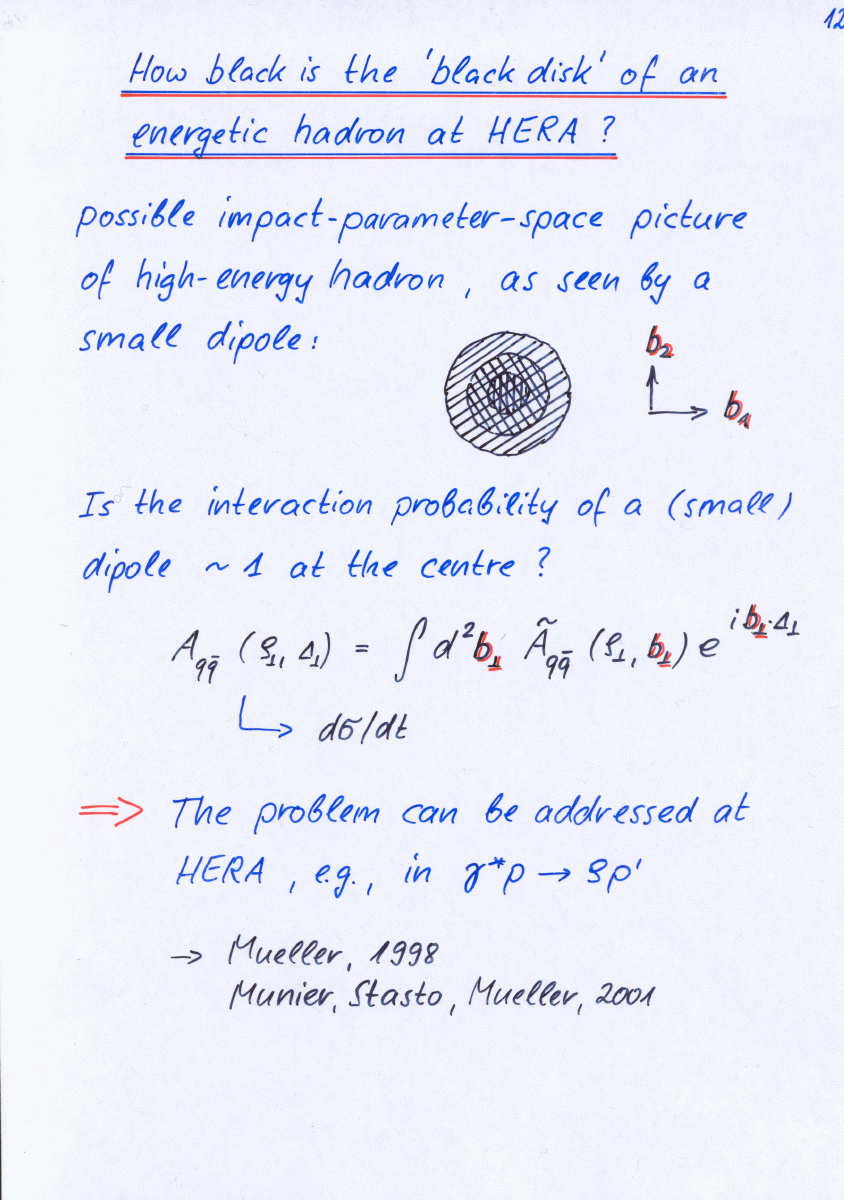 12
How black is the 'black disk' of an
energetic hadron at HERA ?
possible impact-parameter-space picture
of high-energy hadron , as seen by a
small dipole:
b₂
b₁
Is the interaction probability of a (small)
dipole ~ 1 at the centre ?
A_{qq̄} (ρ_⊥, Δ_⊥) = ∫ d²b_⊥ Ã_{qq̄} (ρ_⊥, b_⊥) e^{i b_⊥·Δ_⊥}
↳ dσ/dt
⇒ The problem can be addressed at
HERA , e.g., in γ*p → ρp'
→ Mueller, 1998
Munier, Stasto, Mueller, 2001